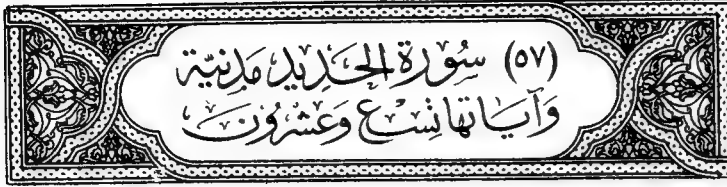 (٥٧) سُورَة الحَدِيد مَدنِيَّة
وَآيَاتهَا تِسْع وَعشْرُونَ